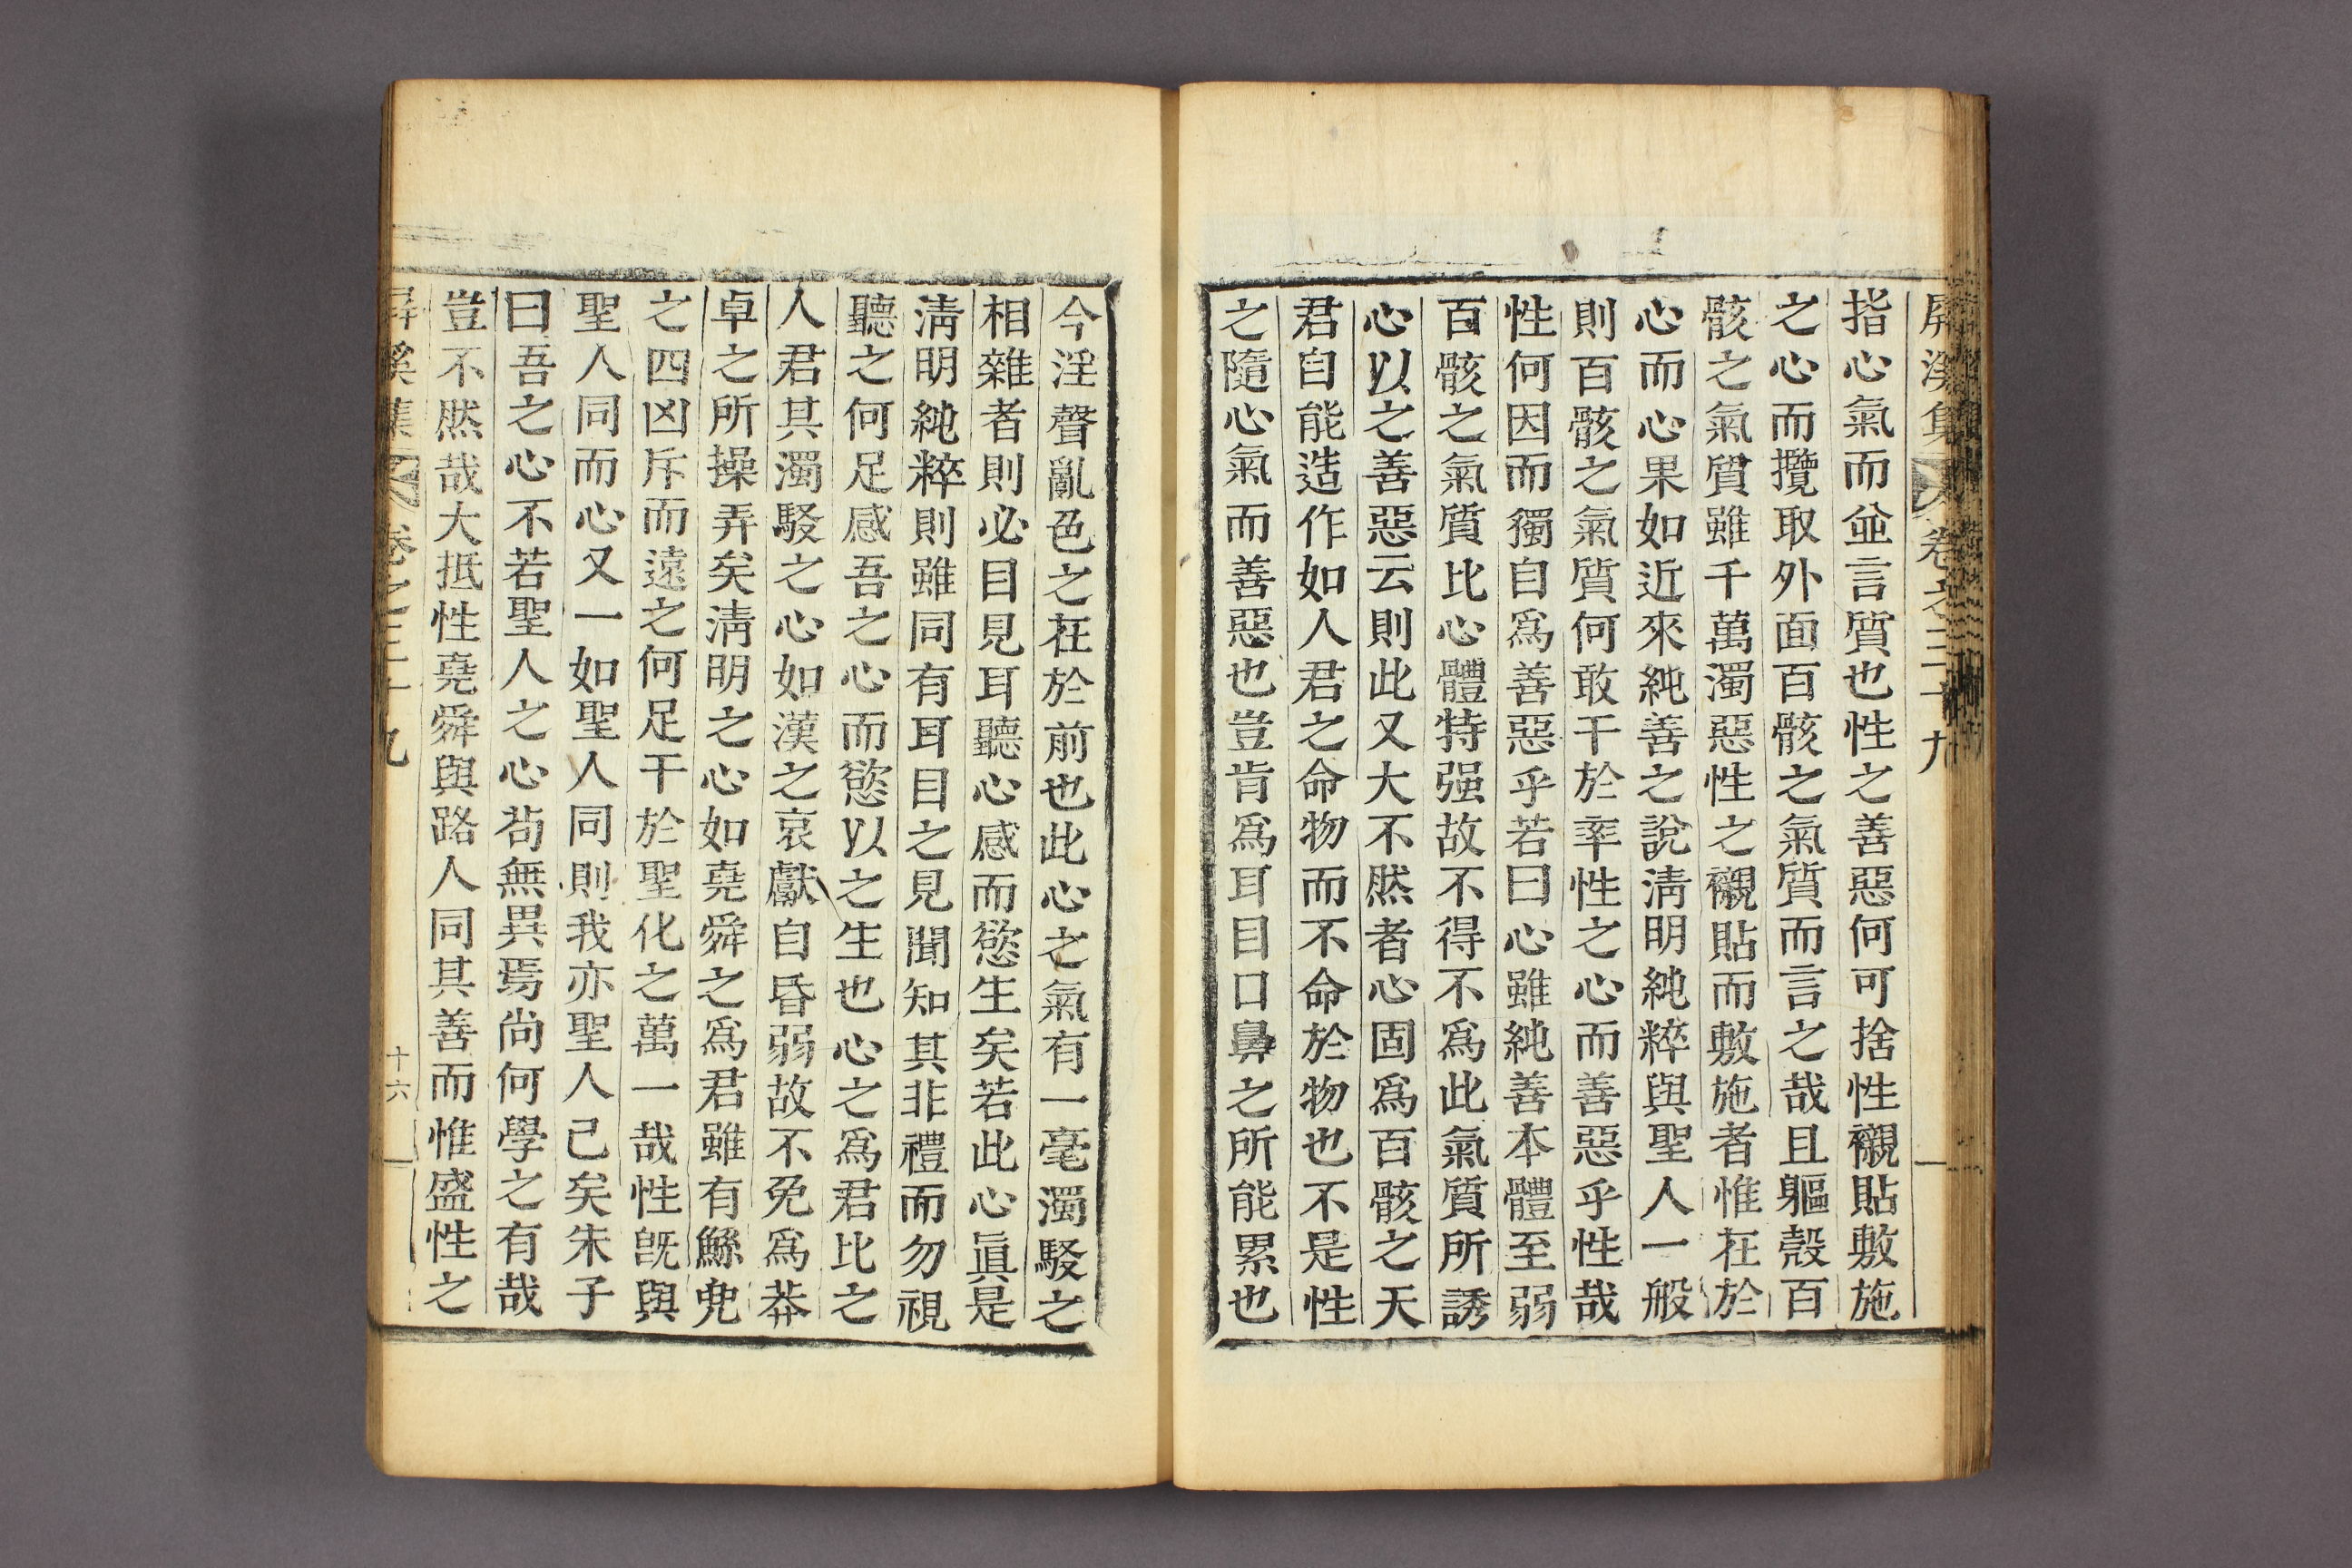 屛溪集 卷之三十九
指心氣而並言質也性之善惡何可捨性襯貼敷施
之心而攬取外面百骸之氣質而言之哉且軀殼百
骸之氣質雖千萬濁惡性之襯貼而敷施者惟在於
心而心果如近來純善之說淸明純粹與聖人一般
則百骸之氣質何敢干於率性之心而善惡乎性哉
性何因而獨自爲善惡乎若曰心雖純善本體至弱
百骸之氣質比心體特强故不得不爲此氣質所誘
心以之善惡云則此又大不然者心固爲百骸之天
君自能造作如人君之命物而不命於物也不是性
之隨心氣而善惡也豈肯爲耳目口鼻之所能累也
今淫聲亂色之在於前也此心之氣有一毫濁駁之
相雜者則必目見耳聽心感而慾生矣若此心眞是
淸明純粹則雖同有耳目之見聞知其非禮而勿視
聽之何足感吾之心而慾以之生也心之爲君比之
人君其濁駁之心如漢之哀獻自昏弱故不免爲莽
卓之所操弄矣淸明之心如堯舜之爲君雖有鯀兜
之四凶斥而遠之何足干於聖化之萬一哉性旣與
聖人同而心又一如聖人同則我亦聖人已矣朱子
曰吾之心不若聖人之心苟無異焉尚何學之有哉
豈不然哉大抵性堯舜與路人同其善而惟盛性之
屛溪集 卷之三十九 十六